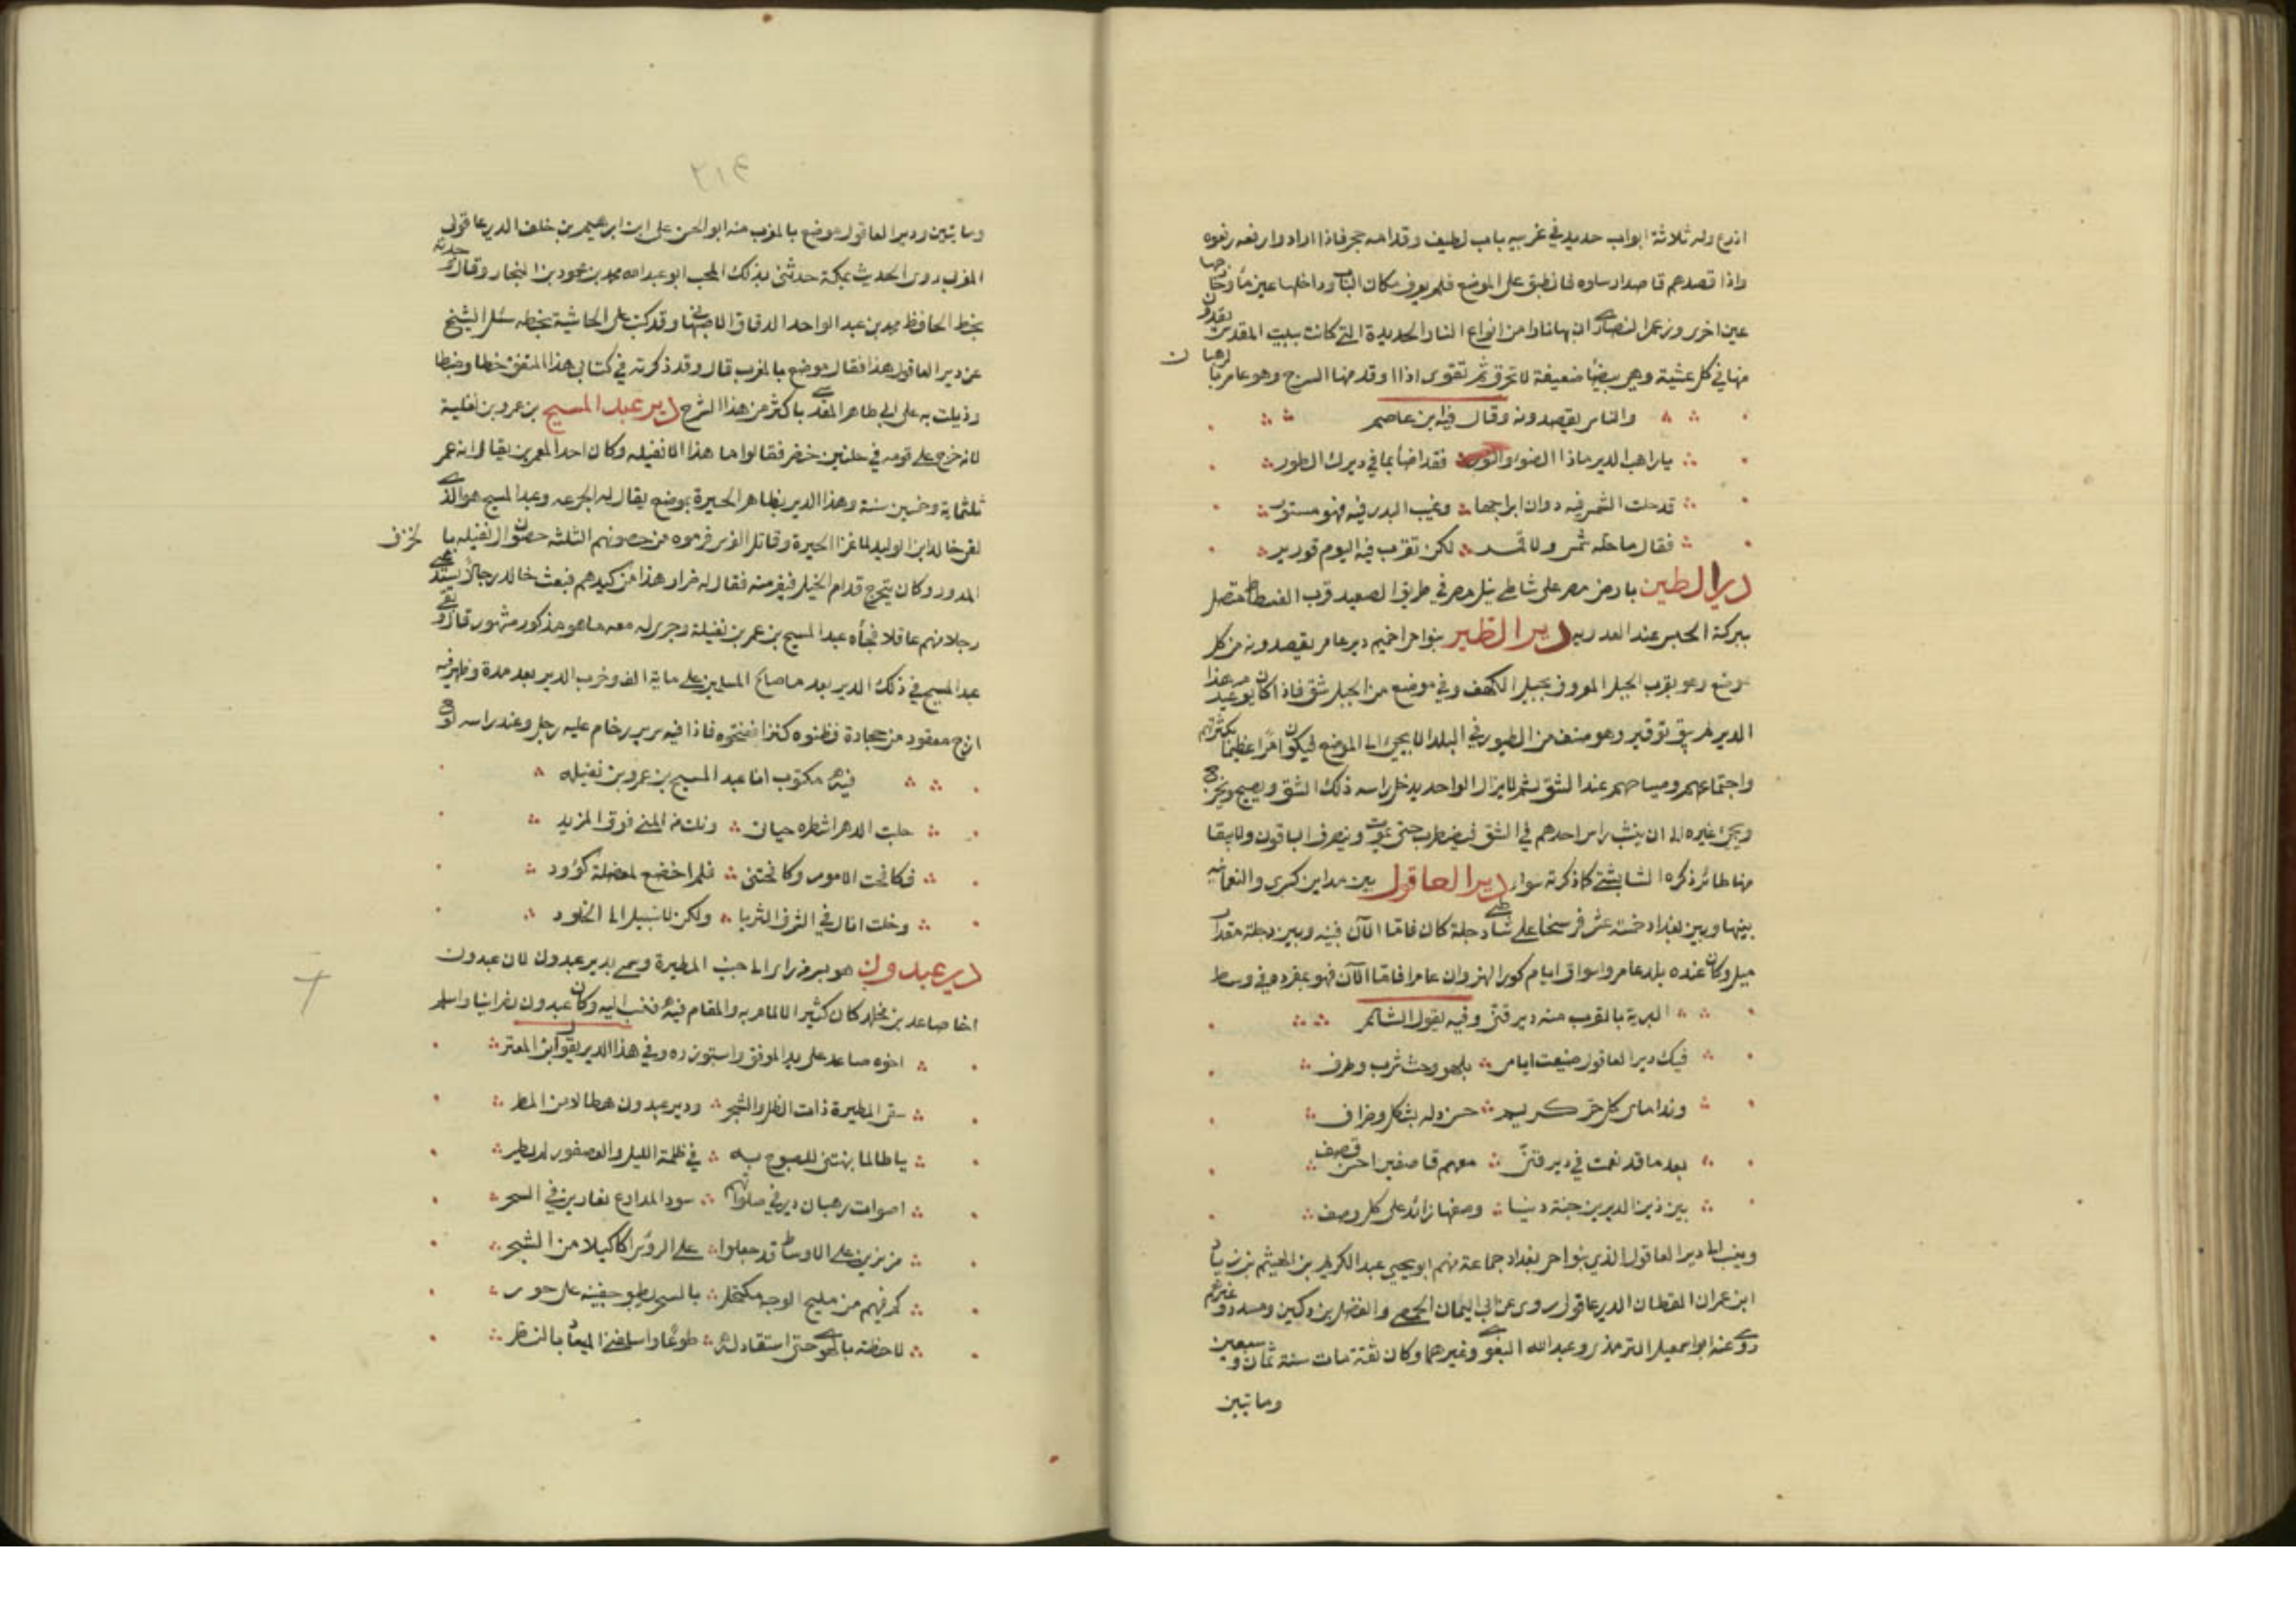 اذرع وله ثلاثة ابواب حديد في غربيه باب لطيف وقدامه حجر فاذا ارادوا رفعه رفعوه
واذا قصدهم قاصد ارسلوه فانطبق على الموضع فلم يعرف مكان الباب وداخلها عين ماء وخارجها
عين اخرى وزعم النصارى ان بها نارا من انواع النار الجديدة التي كانت ببيت المقدس يقدون
منها في كل عشية وهي بيضاء ضعيفة لا تحرق ثم تقوى اذا اوقد منها السرج وهو عامر بالرهبان
والناس يقصدونه وقال فيه ابن عاصم
يا راهب الدير ماذا الضوء والنور فقد اضاء بما في ديرك الطور
قد حلت الشمس فيه دون ابراجها وغيب البدر فيه فهو مستور
فقال ما حله شمس ولا قمر لكن تقرب فيه اليوم قورير
دير الطين بارض مصر على شاطئ نيل مصر في طريق الصعيد قرب الفسطاط متصل
ببركة الحبس عند العدوية دير الطير بنواحي اخميم دير عامر يقصدونه من كل
موضع وهو بقرب الجبل المعروف بجبل الكهف وفي موضع من الجبل شق فاذا كان يوم عيد هذا
الدير لم يبق بوقير وهو صنف من الطيور في البلد الا يجئ الى الموضع فيكون امرا عظيما بكثرتهم
واجتماعهم وصياحهم عند الشق ثم لا يزال الواحد يدخل راسه ذلك الشق ويصيح ويخرج
ويجئ غيره الى ان ينشب راس احدهم في الشق فيضطرب حتى يموت وينصرف الباقون ولا يبقا
منها طائر ذكره الشابشتي كما ذكرته سواء دير العاقول بين مداين كسرى والنعمانية
بينها وبين بغداد خمسة عشر فرسخا على شاطئ دجلة كان فاما الآن فبينه وبين دجلة مقدار
ميل وكان عنده بلد عامر واسواق ايام كون النهروان عامرا فاما الآن فهو بمفرده في وسط
البرية بالقرب منه دير قنى وفيه يقول الشاعر
فيك دير العاقول ضيعت ايامي بلهو وحث شرب وطرف
وندامى كل حر كريم حسن دله بشكل وظرف
بعد ما قد نعمت في دير قنى معهم قاصفين احسن قصف
بين ذين الديرين جنة دنيا وصفها زائد على كل وصف
وينسب الى دير العاقول الذي بنواحي بغداد جماعة منهم ابو يحيى عبد الكريم بن الهيثم بن زياد
ابن عمران القطان الديرعاقولي روى عن ابي اليمان الحمصي والفضل بن دكين ومسدد وغيرهم
روى عنه ابو اسمعيل الترمذي وعبد الله البغوي وغيرهما وكان ثقة مات سنة ثمان وسبعين
وماتين
٢١٤
وماتين ودير العاقول موضع بالمغرب منه ابو الحسن علي ابن ابرهيم بن خلف الديرعاقولي
المغربي روى الحديث بمكة حدثني بذلك المحب ابو عبد الله محمد بن محمود بن النجار وقال وجدته
بخط الحافظ محمد بن عبد الواحد الدقاق الاصبهاني وقد كتب على الحاشية بخطه سئل الشيخ
عن دير العاقول هذا فقال موضع بالمغرب قال وقد ذكرته في كتابي هذا المتفق خطا وضبطا
وذيلت به على ابي طاهر المقدسي باكثر من هذا الشرح دير عبد المسيح بن عمرو بن نفيلة
لانه خرج على قومه في حلتين خضر فقالوا ما هذا الا نفيله وكان احد المعمرين يقال انه عمر
ثلثماية وخمسين سنة وهذا الدير بظاهر الحيرة بموضع يقال له الجرعه وعبد المسيح هو الذي
لقي خالد ابن الوليد لما غزا الحيرة وقاتل الفرس فرموه من حصونهم الثلثه حصون ال نفيله بالخزف
المدور وكان يتحرج قدام الخيل فيفر منه فقال له ضرار هذا من كيدهم فبعث خالد رجالا يستدعي
رجلا منهم عاقلا فجاه عبد المسيح بن عمر بن نفيلة وجرى له معه ما هو مذكور مشهور قال وبقي
عبد المسيح في ذلك الدير بعد ما صالح المسلمين على ماية الف وخرب الدير بعد مدة وظهر فيه
ازج معقود من حجارة فظنوه كنزا ففتحوه فاذا فيه سرير رخام عليه رجل وعند راسه لوح
فيه مكتوب انا عبد المسيح بن عمرو بن نفيله
حلبت الدهر اشطره حياتي ونلت من المنى فوق المزيد
فكافحت الامور وكافحتني فلم اخضع لمعضلة كؤود
وخلت انال في الشرف الثريا ولكن لا سبيل الى الخلود
دير عبدون هو بسر من راى الى جنب المطيرة وسمي بدير عبدون لان عبدون
اخا صاعد بن مخلد كان كثير الالمام به والمقام فيه فنسب اليه وكان عبدون نصرانيا واسلم
اخوه صاعد على يد الموفق واستوزره وفي هذا الدير يقول ابن المعتز
سقى المطيرة ذات الظل والشجر ودير عبدون هطال من المطر
يا طالما نبهتني للصبوح به في ظلمة الليل والعصفور لم يطر
اصوات رهبان دير في صلواتهم سود المدارع نعارين في السحر
مزنرين على الاوساط قد جعلوا على الرؤس اكاليلا من الشجر
كم فيهم من مليح الوجه مكتحل بالسحر يطبق جفنيه على حور
لاحظته بالهوى حتى استقاد له طوعا واسلفني الميعاد بالنظر